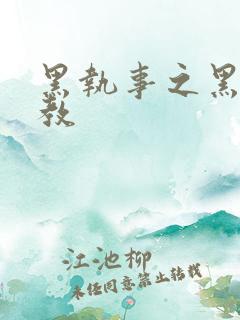 黑执事之黑
教
江池柳
未经同意禁止转载